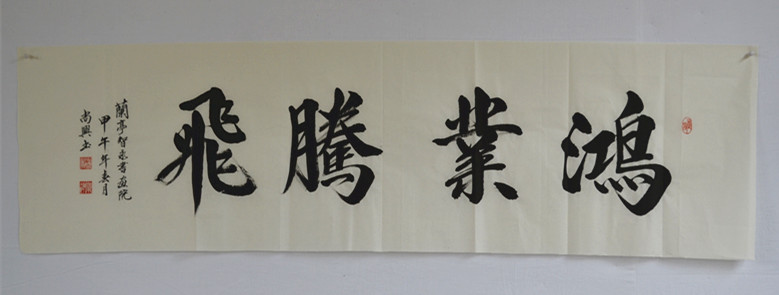 鴻業騰飛
蘭亭智永書画院
甲午年春月
尚興玉